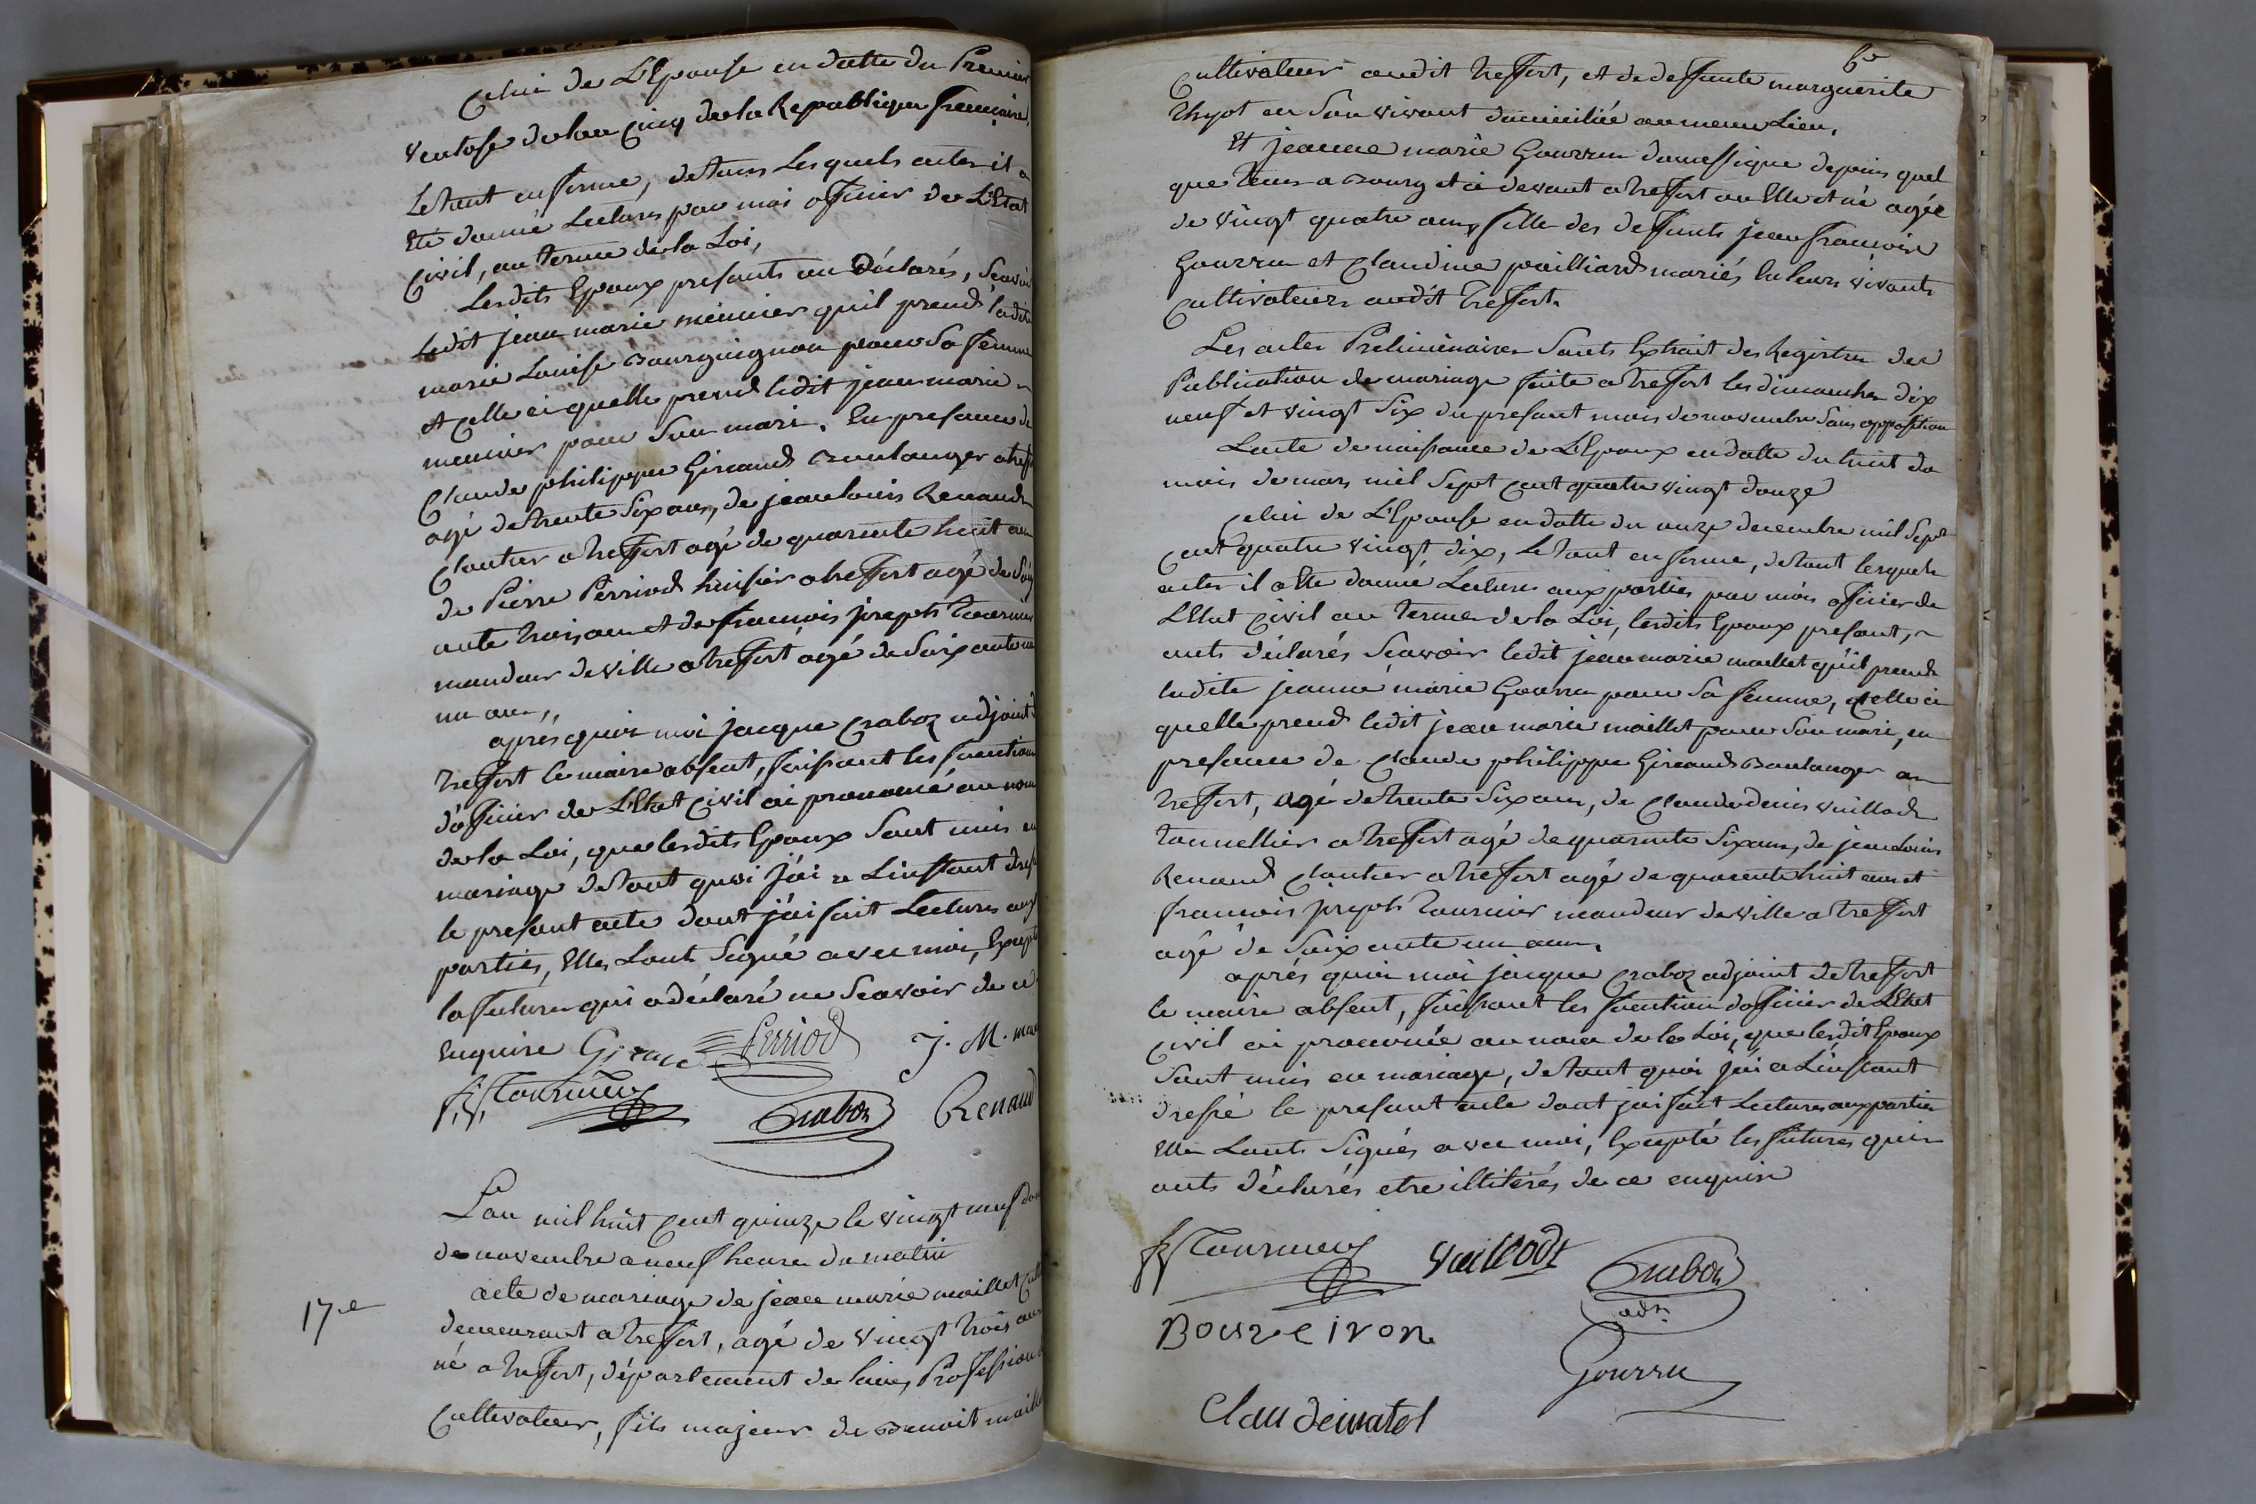 Celui de L'Epouse en datte du Premier
ventose de lan Cinq de la Republique francaise,
Le tout en forme, de tous Lesquels actes il a
Eté donné Lectures par moi officier de L'Etat
Civil, au terme de la Loi,
Lesdits Epoux presents on Déclarés, Scavoir
Ledit jean marie meunier quil prend ladite
marie Louise Bourguignon pour Sa femme
et Celle ci quelle prend ledit jean marie
meunier pour Son mari. En presence de
Claude philippe Giraud Boulanger a treffort
agé de trente Six ans, de jean louis Renaud
Cloutier a treffort agé de quarante huit ans
de Pierre Perriod huissier a treffort agé de Soix
ante trois ans et de francois joseph Tournier
mandeur de ville a treffort agé de Soixante un
un ans,,
apres quoi moi jacque Craboz adjoint de
treffort le maire absent, faissant les fonctions
d'officier de L'Etat Civil ai prononcé au nom
de la Loi, que lesdits Epoux Sont unis en
mariage de tout quoi j'ai a Linstant dressé
le present acte dont j'ai fait Lectures aux
parties, Elles Lont Signé avec moi, Excepté
la future qui a déclaré ne Scavoir de ce
Enquise Giraud Perriod J. M. meu
f. j. Tournier Craboz Renaud
L'an mil huit Cent quinze le vingt neuf du
de novembre a neuf heures du matin
17e
acte de mariage de jean marie maillet Cult
demeurant a treffort, agé de vingt trois ans
né a treffort, département de lain, Profession de
Cultivateur, fils majeur de Benoit maillet
Cultivateur audit treffort, et de deffunte marguerite
Thyot en Son vivant domiciliée au meme Lieu,
Et jeanne marie Gourru domestique depuis quel
que tems a Bourg et ci devant a treffort ou Elle et né agée
de vingt quatre ans fille des deffunts jean francois
Gourru et Claudine pailliard mariés En leurs vivants
Cultivateurs audit Treffort.
Les actes Preliminaires Sonts Extrait des Registres des
Publication de mariage faite a treffort les dimanches dix
neuf et vingt Six du present mois de novembre Sans opposition
Lacte de naissance de L'Epoux en datte du huit du
mois de mars mil Sept Cent quatre vingt douze
Celui de L'Epouse en datte du onze decembre mil Sept
Cent quatre vingt dix, Le tout en forme, de tout lesquels
actes il a Eté donné Lectures aux parties par moi officier de
L'Etat Civil au Termes de la Loi, lesdits Epoux present,
onts déclarés Scavoir ledit jean marie maillet qu'il prend
ladite jeanne marie Gourru pour Sa femme, et Celle ci
quelle prend ledit jean marie maillet pour Son mari, en
presence de Claude philippe Giraud Boulanger a
treffort, agé de trente Six ans, de Claude denis vuillod
tonnellier a treffort agé de quarente Six ans, de jean louis
Renaud Cloutier a treffort agé de quarente huit ans et
francois joseph Tournier mandeur de ville a treffort
agé de Soixante un ans.
après quoi moi jacque Craboz adjoint de treffort
le maire absent, faissant les fonction d'officier de L'Etat
Civil ai prononcé au nom de la Loi, que lesdit Epoux
Sont unis en mariage, de tout quoi j'ai a Linstant
dressé le present acte dont jai fait Lectures aux parties
Elles Lonts Signés avec moi, Excepté les futures qui
onts déclarés etre illitérés de ce enquis
f j Tournier vuillodt Craboz
adt.
Boureiron
Gourru